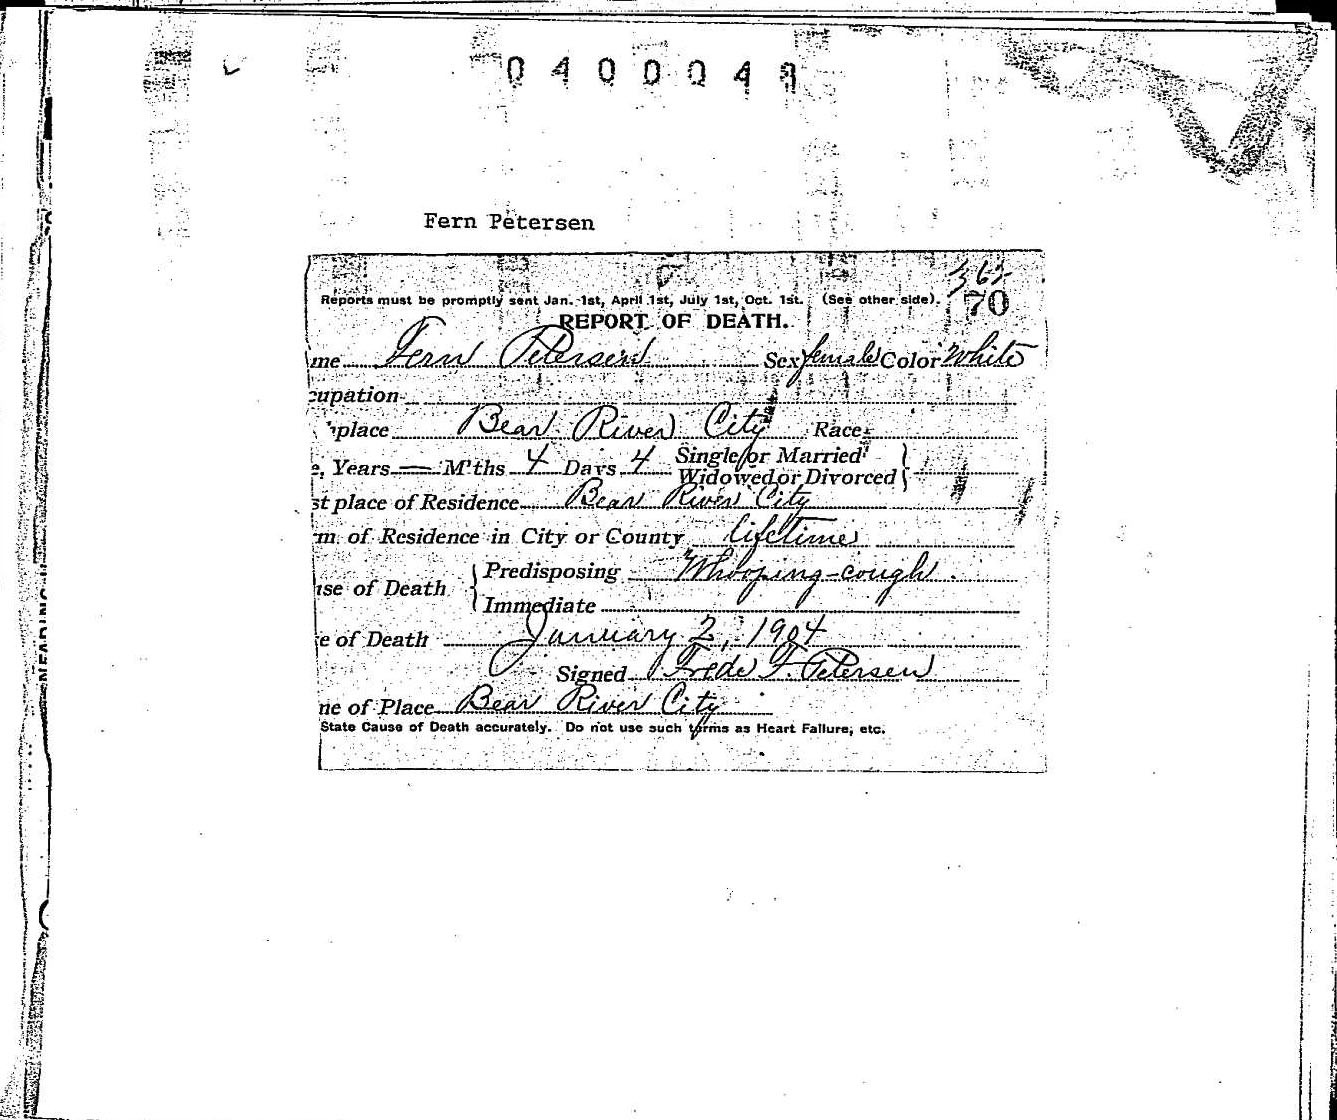 0400043
Fern Petersen
Reports must be promptly sent Jan. 1st, April 1st, July 1st, Oct. 1st. (See other side).
70
REPORT OF DEATH.
me Fern Petersen Sex female Color White
cupation
hplace Bear River City Race
e, Years — M'ths 4 Days 4 Single or Married Widowed or Divorced
st place of Residence Bear River City
rm of Residence in City or County lifetime
use of Death Predisposing Whooping-cough.
Immediate
e of Death January 2, 1904
Signed Frede F. Petersen
ne of Place Bear River City
State Cause of Death accurately. Do not use such terms as Heart Failure, etc.